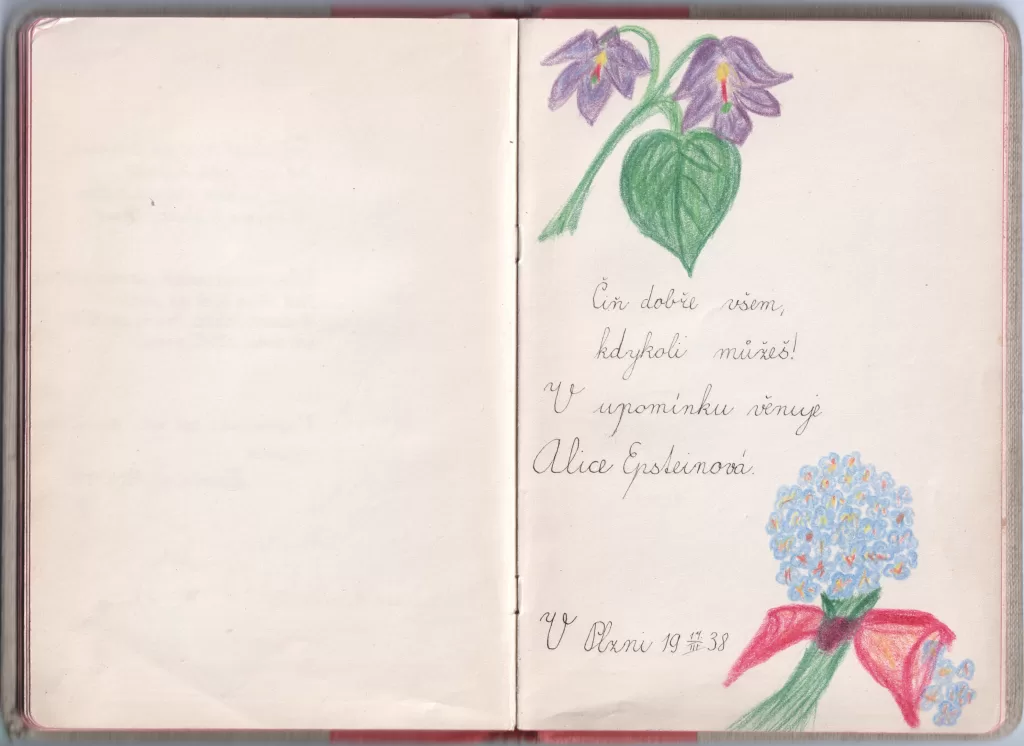 Čiň dobře všem,
kdykoli můžeš!
V upomínku věnuje
Alice Epsteinová.
V Plzni 19 17./III 38